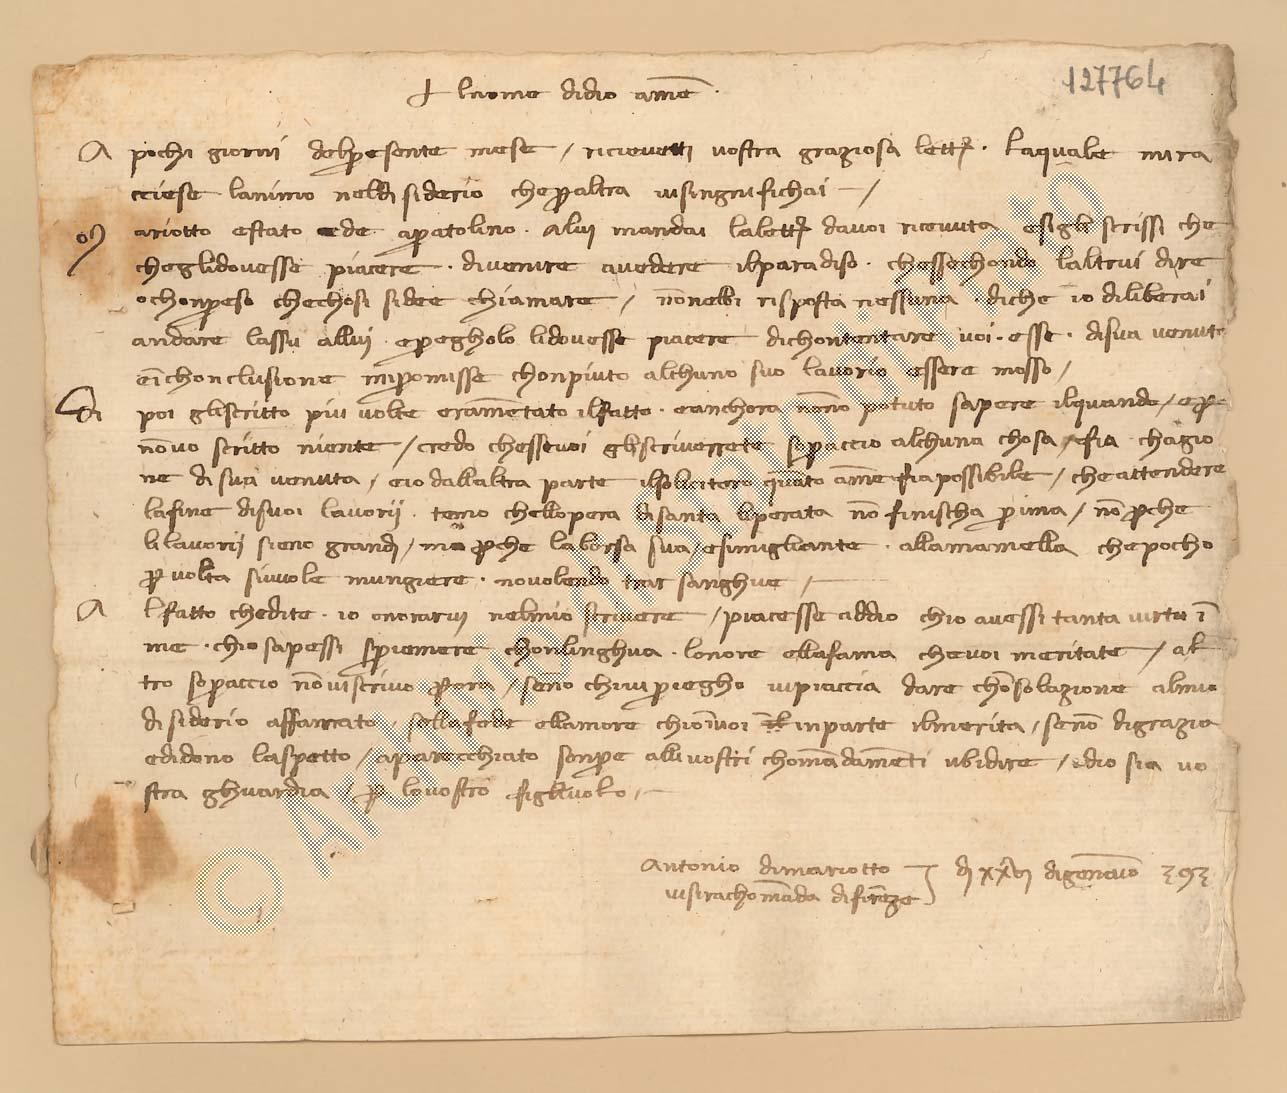 127764
+ lnome didio ame
A pochi giorni delpresente mese / ricievetti vostra graziosa lett. laquale mira
cciese lanimo neldisiderio cheperaltra visingnifichai /
M ariotto estato ede apratolino . alui mandai lalett davoi ricevuta esigli scrissi che
cheglidovesse piacere . divenire avedere ilparadiso . chessechondo laltrui dire
ochonpreso chechosi sidee chiamare / nonnebbi risposta nessuna . diche io diliberai
andare lassu allui . epregholo lidovesse piacere dichontentare voi . esse . disua venuta
einchonclusione mipromisse chonpiuto alchuno suo lavorio essere mosso /
Di poi gliscritto piu volte eramentato ilfatto . eanchora nonno potuto sapere ilquando / eper
nonvo scritto niente / credo chessevoi gliscriverrete sopraccio alchuna chosa / efia chagio
ne di sua venuta / eio dallaltra parte ilsolicitero quanto ame fiapossibile / che attendere
lafine disuoi lavorii . temo chellopera disanta liperata non finischa prima / non perche
li lavorii sieno grandi / ma perche la borsa sua / esimigliante . allamamella chepocho
per volta sivuole mungiere . novolendo trar sanghue /
A lfatto chedite . io onorarvi nelmio scrivere / piacesse addio chio avessi tanta virtu in
me . chio sapessi spriemere chonlinghua . lonore ellafama chevoi meritate / al
tro sopraccio nonviscrivo perora / seno chivipriegho vipiaccia dare chonsolazione almio
disiderio affannato / sellafede ellamore chioinvoi inparte ilmerita / senon digrazia
edidono laspetto / aparecchiato senpre alli vostri chomandamenti ubidire / idio sia vo
stra ghuardia / per lovostro figlivolo /
Antonio dimariotto di xxvi digennaio 393
visirachomanda difirenze
© Archivio di Stato di Prato